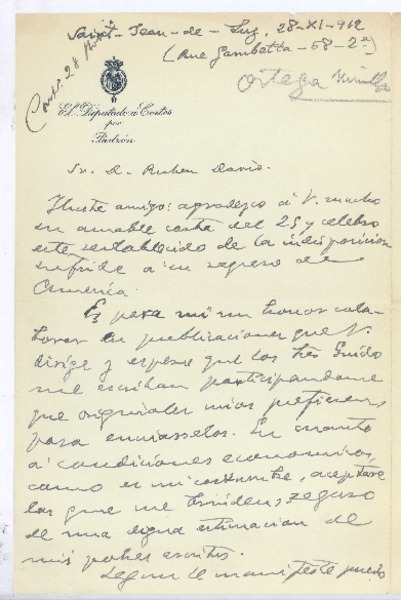 Saint-Jean-de-Luz, 28-XI-912
(Rue Gambetta-58-2º)
Cont. 28
Ortega Munilla
El Diputado á Cortes
por
Padrón
Sr. D. Ruben Dario.
Ilustre amigo: agradezco á V. mucho
su amable carta del 25 y celebro
este restablecido de la indisposicion
sufrida a su regreso de
America.
Es para mi un honor cola-
borar en publicaciones que V.
dirige y espero que los Srs Guido
me escriban participandome
que originales mios prefieren,
para enviarselos. En cuanto
á condiciones economicas,
como es mi costumbre, aceptare
las que me brinden, seguro
de una digna estimacion de
mis pobres escritos.
Segun le manifeste puedo